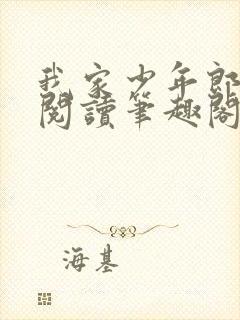 我家少年郎
閱讀筆趣閣
海基